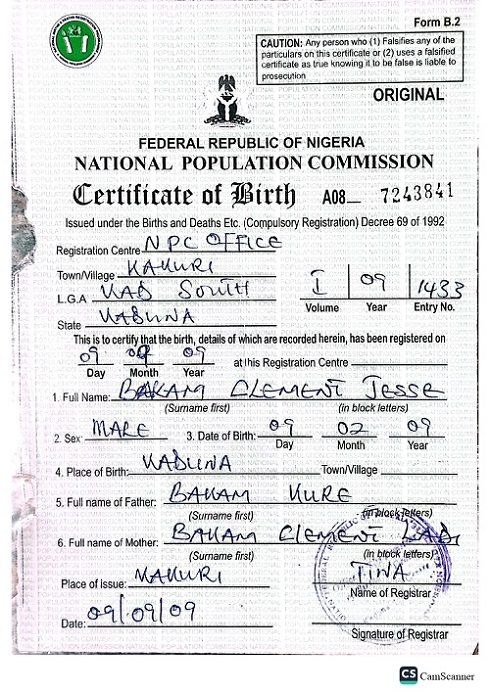 Form B.2
CAUTION: Any person who (1) Falsifies any of the
particulars on this certificate or (2) uses a falsified
certificate as true knowing it to be false is liable to
prosecution
ORIGINAL
FEDERAL REPUBLIC OF NIGERIA
NATIONAL POPULATION COMMISSION
Certificate of Birth A08 7243841
Issued under the Births and Deaths Etc. (Compulsory Registration) Decree 69 of 1992
Registration Centre NPC OFFICE
Town/Village KAKURI
L.G.A KAD SOUTH
State KADUNA
I 09 1433
Volume Year Entry No.
This is to certify that the birth, details of which are recorded herein, has been registered on
09 09 09 at this Registration Centre
Day Month Year
1. Full Name: BAKAM CLEMENT JESSE
(Surname first) (in block letters)
2. Sex MALE 3. Date of Birth: 09 02 09
Day Month Year
4. Place of Birth: KADUNA Town/Village
5. Full name of Father: BAKAM KURE
(Surname first) (in block letters)
6. Full name of Mother: BAKAM CLEMENT LADI
(Surname first) (in block letters)
Place of issue: KAKURI TINA
Name of Registrar
Date: 09/09/09
Signature of Registrar
CS CamScanner